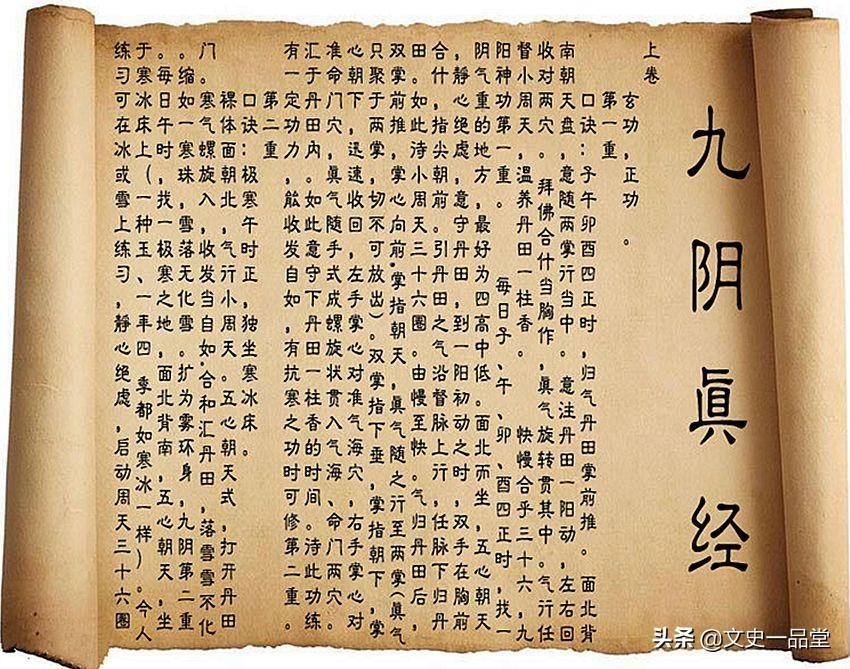 九阴眞经
上卷
玄功，正功。
第一重
口诀：子午卯酉四正时，归气丹田掌前推。面北背
南朝天盘，意随两掌行当中。意注丹田一阳动，左右回
收对两穴。拜佛合什当胸作，眞气旋转贯其中。气行任
督小周天，温养丹田一柱香。快慢合乎三十六，九
阳神功第一重。每日子、午、卯、酉四正时，找一
阴气重的地方，最好为四高中低。面北而坐，五心朝天
，静心绝虑，意守丹田，到一阳初动之时，双手在胸前
合什，指尖朝前。引丹田之气沿督脉上行，任脉下归丹
田。如此待小周天三十六圈。由慢至快。气归丹田后，
双掌前推，掌心向前，掌指朝天，眞气随之行至两掌（眞气
只聚于两掌，切不可放出）。双掌指下垂，掌指朝下，掌
心朝下，迅速收回，左手掌心对准气海穴，右手掌心对
准命门穴，眞气随手式成螺旋状贯入气海、命门两穴。
汇于丹田内。如此意守下丹田一柱香的时间。待此功练
有一定功力，能收发自如，有抗寒之功时可修第二重。
第二重
口诀：极寒午时正，独坐寒冰床。
裸体面朝北，气行小周天。五心朝天式，打开丹田
门。寒气螺旋入，收发当自如，合和汇丹田，落雪雪不化
。缩如一寒珠，雪落无化雪。扩为雾环身，九阴第二重
。每日午时，找一极寒之地，面北背南，五心朝天，坐
于寒冰床上（一种玉、一年四季都如寒冰一样）。今人
练习可在冰或雪上练习，静心绝虑，启动周天三十六圈
头条 @文史一品堂